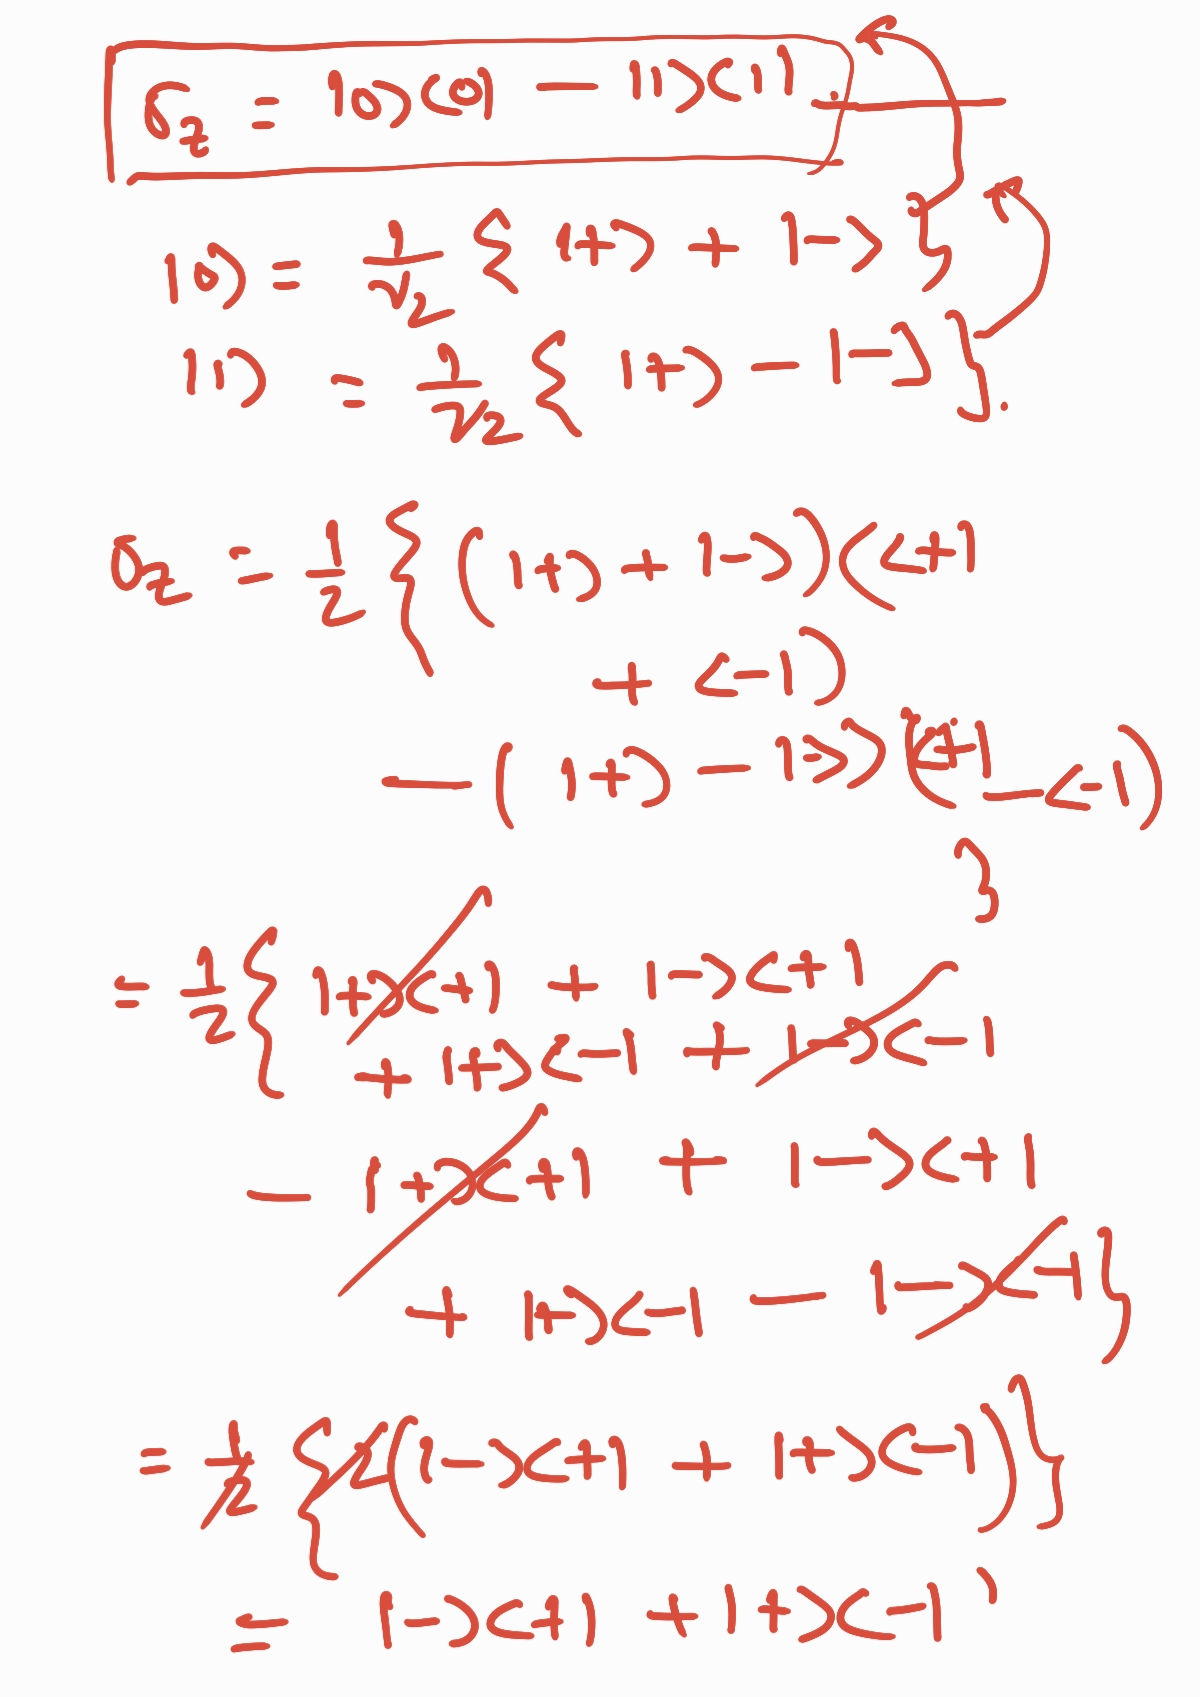 σz = |0⟩⟨0| − |1⟩⟨1|.
|0⟩ = 1/√2 { |+⟩ + |−⟩ }
|1⟩ = 1/√2 { |+⟩ − |−⟩ }.
σz = 1/2 { ( |+⟩ + |−⟩ ) ( ⟨+|
+ ⟨−| )
− ( |+⟩ − |−⟩ ) ( ⟨+| − ⟨−| )
}
= 1/2 { |+⟩⟨+| + |−⟩⟨+|
+ |+⟩⟨−| + |−⟩⟨−|
− |+⟩⟨+| + |−⟩⟨+|
+ |+⟩⟨−| − |−⟩⟨−| }
= 1/2 { 2 ( |−⟩⟨+| + |+⟩⟨−| ) }
= |−⟩⟨+| + |+⟩⟨−| ,